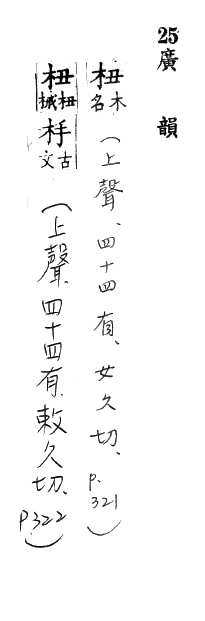 25廣韻
杻木名(上聲、四十四有、女久切、p.321)
杻杻械杽古文(上聲、四十四有、敕久切、p322)